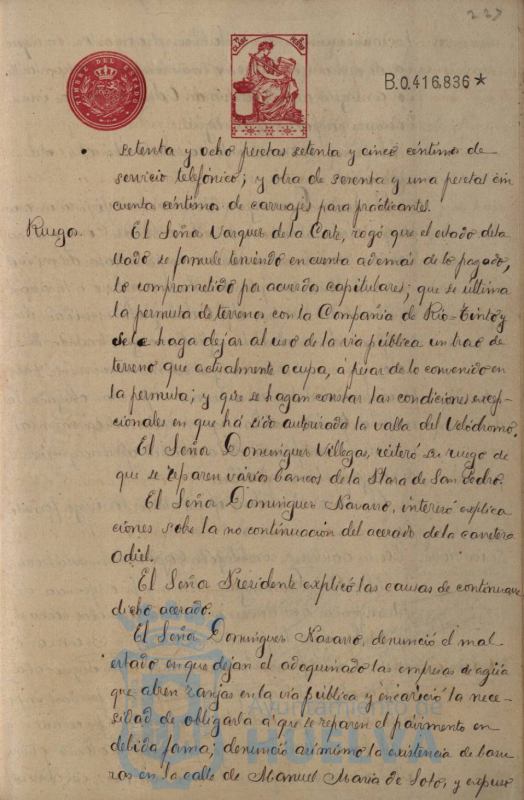 227
TIMBRE DEL ESTADO
CLASE
B.0.416.836*
setenta y ocho pesetas setenta y cinco céntimos de
servicio telefónico; y otra de sesenta y una pesetas cin
cuenta céntimos de carruajes para practicantes.
Ruego.
El Señor Vazquez de la Corte, rogó que el estado deta
llado se formule teniendo en cuenta además de lo pagado,
lo comprometido por acuerdos capitulares; que se ultime
la permuta de terrenos con la Compañia de Rio-Tinto y
se le haga dejar al uso de la via pública un trozo de
terreno que actualmente ocupa, á pesar de lo convenido en
la permuta; y que se hagan constar las condiciones excep-
cionales en que há sido autorizada la valla del Velódromo.
El Señor Dominguez Villegas, reiteró su ruego de
que se reparen varios bancos de la Plaza de San Pedro.
El Señor Dominguez Navarro, interesó explica
ciones sobre la no continuación del acerado de la carretera
Odiel.
El Señor Presidente explicó las causas de
dicho acerado.
El Señor Dominguez Navarro, denunció el mal
estado en que dejan el adoquinado las empresas de agua
que abren zanjas en la via pública y encareció la nece-
sidad de obligarla á que se reparen el pavimento en
debida forma; denunció asimismo la existencia de basu
ras en la calle de Manuel Maria de Soto, y expuso
Ayuntamiento de
HUELVA